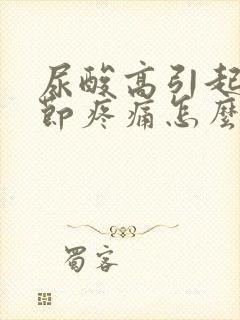 尿酸高引起
节疼痛怎麼
蜀客